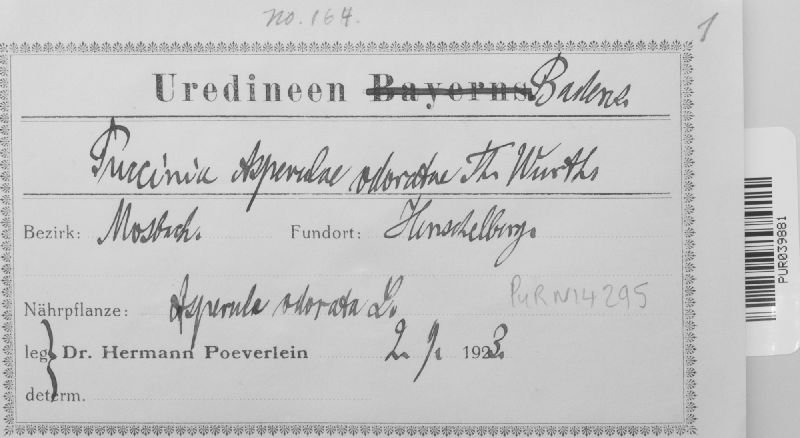 no. 164.
1
Uredineen Bayerns. Badens.
Puccinia Asperulae odoratae Th. Wurth.
Bezirk: Mosbach. Fundort: Henschelberg.
Nährpflanze: Asperula odorata L.
PUR N14295
leg. Dr. Hermann Poeverlein 2. 9. 1923.
determ.
PUR039881